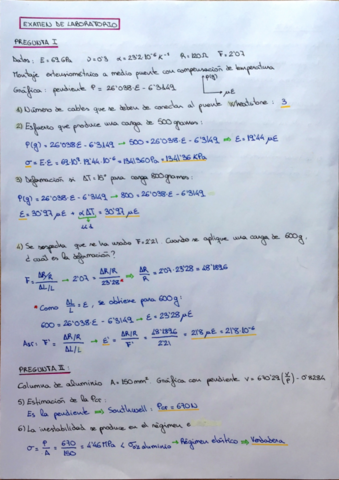 EXAMEN DE LABORATORIO
PREGUNTA I
Datos: E = 69 GPa ν = 0'3 α = 23'2·10⁻⁶ K⁻¹ R = 120 Ω F = 2'07
Montaje extensométrico a medio puente con compensación de temperatura
Gráfica: pendiente P = 26'038·E - 6'3149
P(g)
με
1) Número de cables que se deben de conectar al puente Wheatstone: 3
2) Esfuerzo que produce una carga de 500 gramos:
P(g) = 26'038·E - 6'3149 → 500 = 26'038·E - 6'3149 ⇒ E = 19'44 με
σ = E·E = 69·10⁹·19'44·10⁻⁶ = 1341360 Pa = 1341'36 KPa
3) Deformación si ΔT = 15° para carga 800 gramos:
P(g) = 26'038·E - 6'3149 → 800 = 26'038·E - 6'3149
E = 30'97 με + αΔT = 30'97 με
4) Se sospecha que se ha usado F = 2'21. Cuando se aplique una carga de 600 g,
¿cual es la deformación?
F = ΔR/R / ΔL/L → 2'07 = ΔR/R / 23'28 ⇒ ΔR/R = 2'07·23'28 = 48'1896
• Como ΔL/L = E, se obtiene para 600 g:
600 = 26'038·E - 6'3149 → E = 23'28 με
Así: F' = ΔR/R / ΔL/L → E' = ΔR/R / F' = 48'1896 / 2'21 = 21'8 με = 21'8·10⁻⁶
PREGUNTA II:
Columna de aluminio A = 150 mm². Gráfica con pendiente v = 670'29 (v/P) - 0'8286
5) Estimación de la Pcr:
Es la pendiente ⇒ Southwell: Pcr = 670 N
6) La inestabilidad se produce en el régimen e
σ = P/A = 670/150 = 4'46 MPa < aluminio → Régimen elástico ⇒ Verdadera